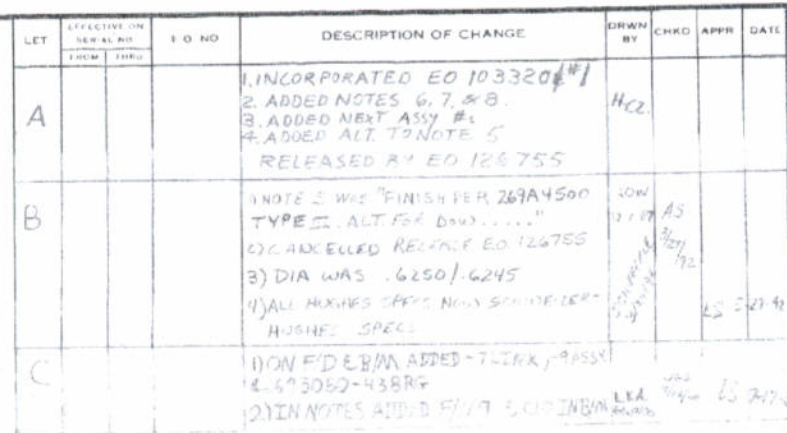 LET EFFECTIVE ON SERIAL NO. E O NO DESCRIPTION OF CHANGE DRWN BY CHKD APPR DATE
FROM THRU
A
1. INCORPORATED EO 103320 #1
2. ADDED NOTES 6, 7, & 8.
3. ADDED NEXT ASSY #s
4. ADDED ALT. TO NOTE 5
RELEASED BY EO 126755
B
1) NOTE 5 WAS "FINISH PER 269A4500
TYPE II. ALT. FOR DOW....."
2) CANCELLED RELEASE EO. 126755
3) DIA WAS .6250/.6245
4) ALL HUGHES SPECS NOW SCHWEIZER-
HUGHES SPECS
AS
LS
C
1) ON F/D & B/M ADDED -7 LINK, -9 ASSY
2) IN NOTES ADDED
LKA
LS